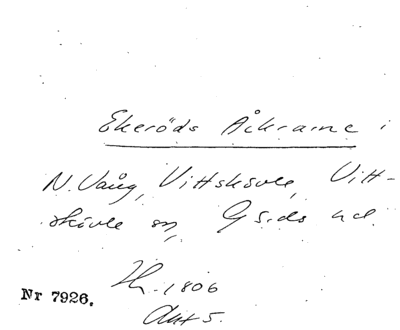 Ekeröds Åkrarne i
N. Vång, Vittskövle, Vitt-
skövle sn, Gärds hd.
1806
Nr 7926.
Akt 5.